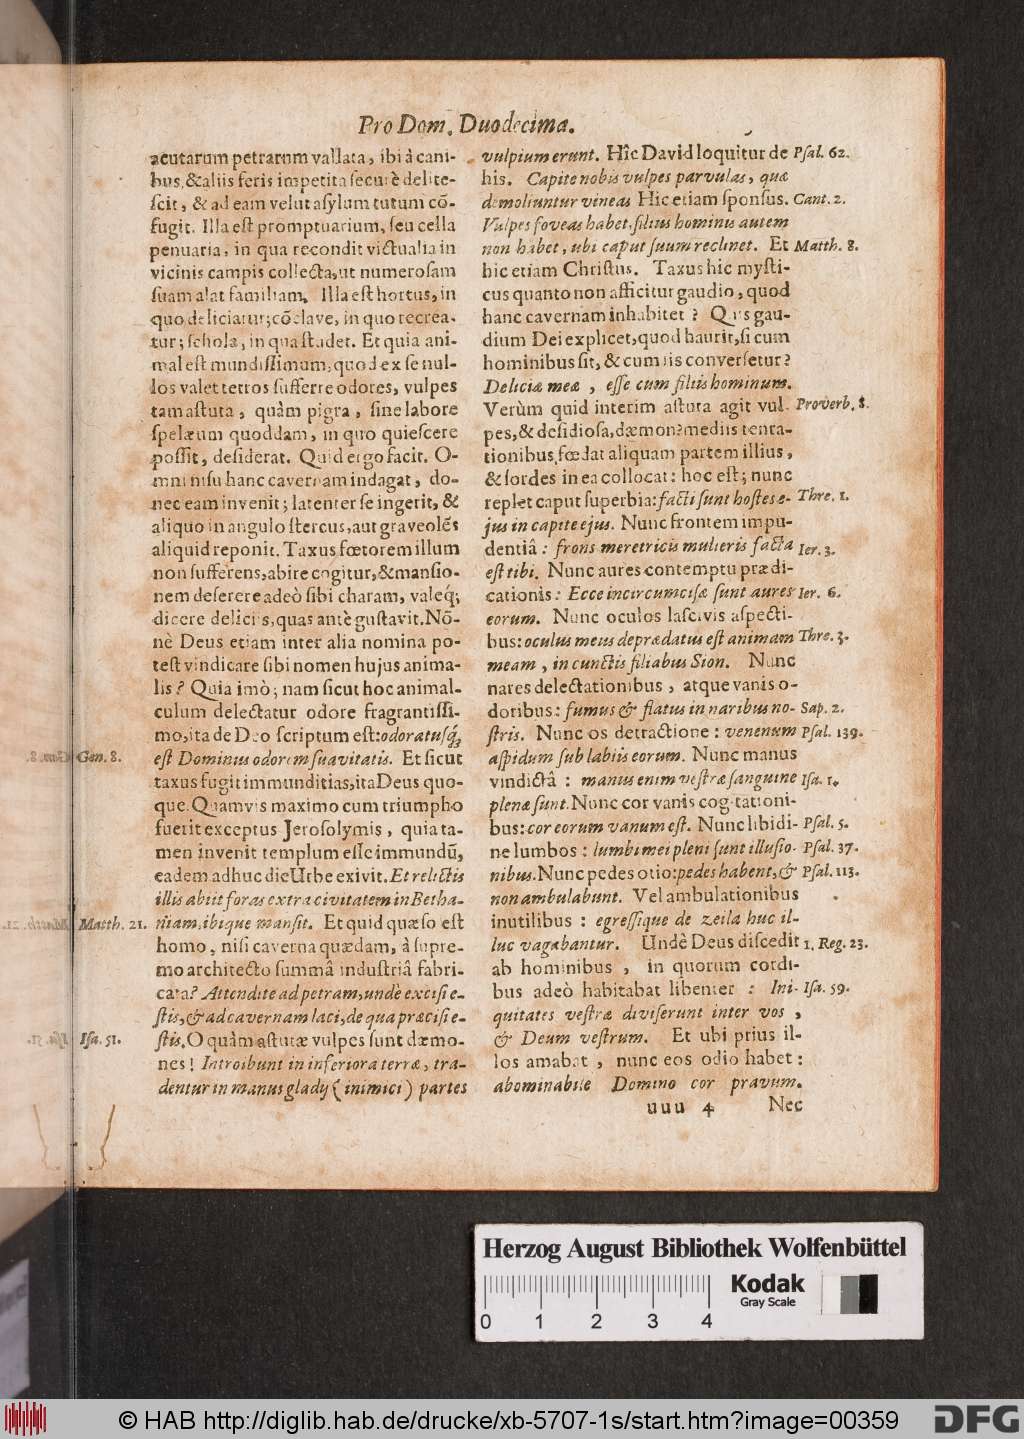 Pro Dom. Duodecima.
acutarum petrarum vallata, ibi à cani-
bus, & aliis feris impetita securè delite-
scit, & ad eam velut asylum tutum cõ-
fugit. Illa est promptuarium, seu cella
penuaria, in qua recondit victualia in
vicinis campis collecta, ut numerosam
suam alat familiam. Illa est hortus, in
quo deliciatur; cõclave, in quo recrea-
tur; schola, in qua studet. Et quia ani-
mal est mundissimum, quod ex se nul-
los valet tetros sufferre odores, vulpes
tam astuta, quàm pigra, sine labore
spelæum quoddam, in quo quiescere
possit, desiderat. Quid ergo facit. O-
mni nisu hanc cavernam indagat, do-
nec eam invenit; latenter se ingerit, &
aliquo in angulo stercus, aut graveolẽs
aliquid reponit. Taxus fœtorem illum
non sufferens, abire cogitur, & mansio-
nem deserere adeò sibi charam, valeq́;
dicere deliciis, quas antè gustavit. Nõ-
nè Deus etiam inter alia nomina po-
test vindicare sibi nomen hujus anima-
lis? Quia imò; nam sicut hoc animal-
culum delectatur odore fragrantissi-
mo, ita de Deo scriptum est: odoratusq́;
est Dominus odorem suavitatis. Et sicut
Gen. 8.
taxus fugit immunditias, ita Deus quo-
que. Quamvis maximo cum triumpho
fuerit exceptus Jerosolymis, quia ta-
men invenit templum esse immundũ,
eadem adhuc die Urbe exivit. Et relictis
illis abiit foras extra civitatem in Betha-
niam, ibique mansit. Et quid quæso est
Matth. 21.
homo, nisi caverna quædam, à supre-
mo architecto summâ industriâ fabri-
cata? Attendite ad petram, undè excisi e-
stis, & ad cavernam laci, de qua præcisi e-
stis. O quàm astutæ vulpes sunt dæmo-
Isa. 51.
nes! Introibunt in inferiora terræ, tra-
dentur in manus gladij (inimici) partes
vulpium erunt. Hîc David loquitur de
Psal. 62.
his. Capite nobis vulpes parvulas, quæ
demoliuntur vineas Hic etiam sponsus.
Cant. 2.
Vulpes foveas habet, filius hominis autem
non habet, ubi caput suum reclinet. Et
Matth. 8.
hic etiam Christus. Taxus hic mysti-
cus quanto non afficitur gaudio, quod
hanc cavernam inhabitet? Quis gau-
dium Dei explicet, quod haurit, si cum
hominibus sit, & cum iis conversetur?
Deliciæ meæ, esse cum filiis hominum.
Verùm quid interim astuta agit vul-
Proverb. 8.
pes, & desidiosa, dæmon? mediis tenta-
tionibus, fœdat aliquam partem illius,
& sordes in ea collocat: hoc est; nunc
replet caput superbia: facti sunt hostes e-
Thre. 1.
jus in capite ejus. Nunc frontem impu-
dentiâ: frons meretricis mulieris facta
Ier. 3.
est tibi. Nunc aures contemptu prædi-
cationis: Ecce incircumcisæ sunt aures
Ier. 6.
eorum. Nunc oculos lascivis aspecti-
bus: oculus meus deprædatus est animam
Thre. 3.
meam, in cunctis filiabus Sion. Nunc
nares delectationibus, atque vanis o-
doribus: fumus & flatus in naribus no-
Sap. 2.
stris. Nunc os detractione: venenum
Psal. 139.
aspidum sub labiis eorum. Nunc manus
vindictâ: manus enim vestræ sanguine
Isa. 1.
plenæ sunt. Nunc cor vanis cogitationi-
bus: cor eorum vanum est. Nunc libidi-
Psal. 5.
ne lumbos: lumbi mei pleni sunt illusio-
Psal. 37.
nibus. Nunc pedes otio: pedes habent, &
Psal. 113.
non ambulabunt. Vel ambulationibus
inutilibus: egressique de zeila huc il-
luc vagabantur. Undè Deus discedit
1. Reg. 23.
ab hominibus, in quorum cordi-
bus adeò habitabat libenter: Ini-
Isa. 59.
quitates vestræ diviserunt inter vos,
& Deum vestrum. Et ubi prius il-
los amabat, nunc eos odio habet:
abominabile Domino cor pravum.
uuu 4 Nec
Herzog August Bibliothek Wolfenbüttel
Kodak
Gray Scale
0 1 2 3 4
© HAB http://diglib.hab.de/drucke/xb-5707-1s/start.htm?image=00359
DFG